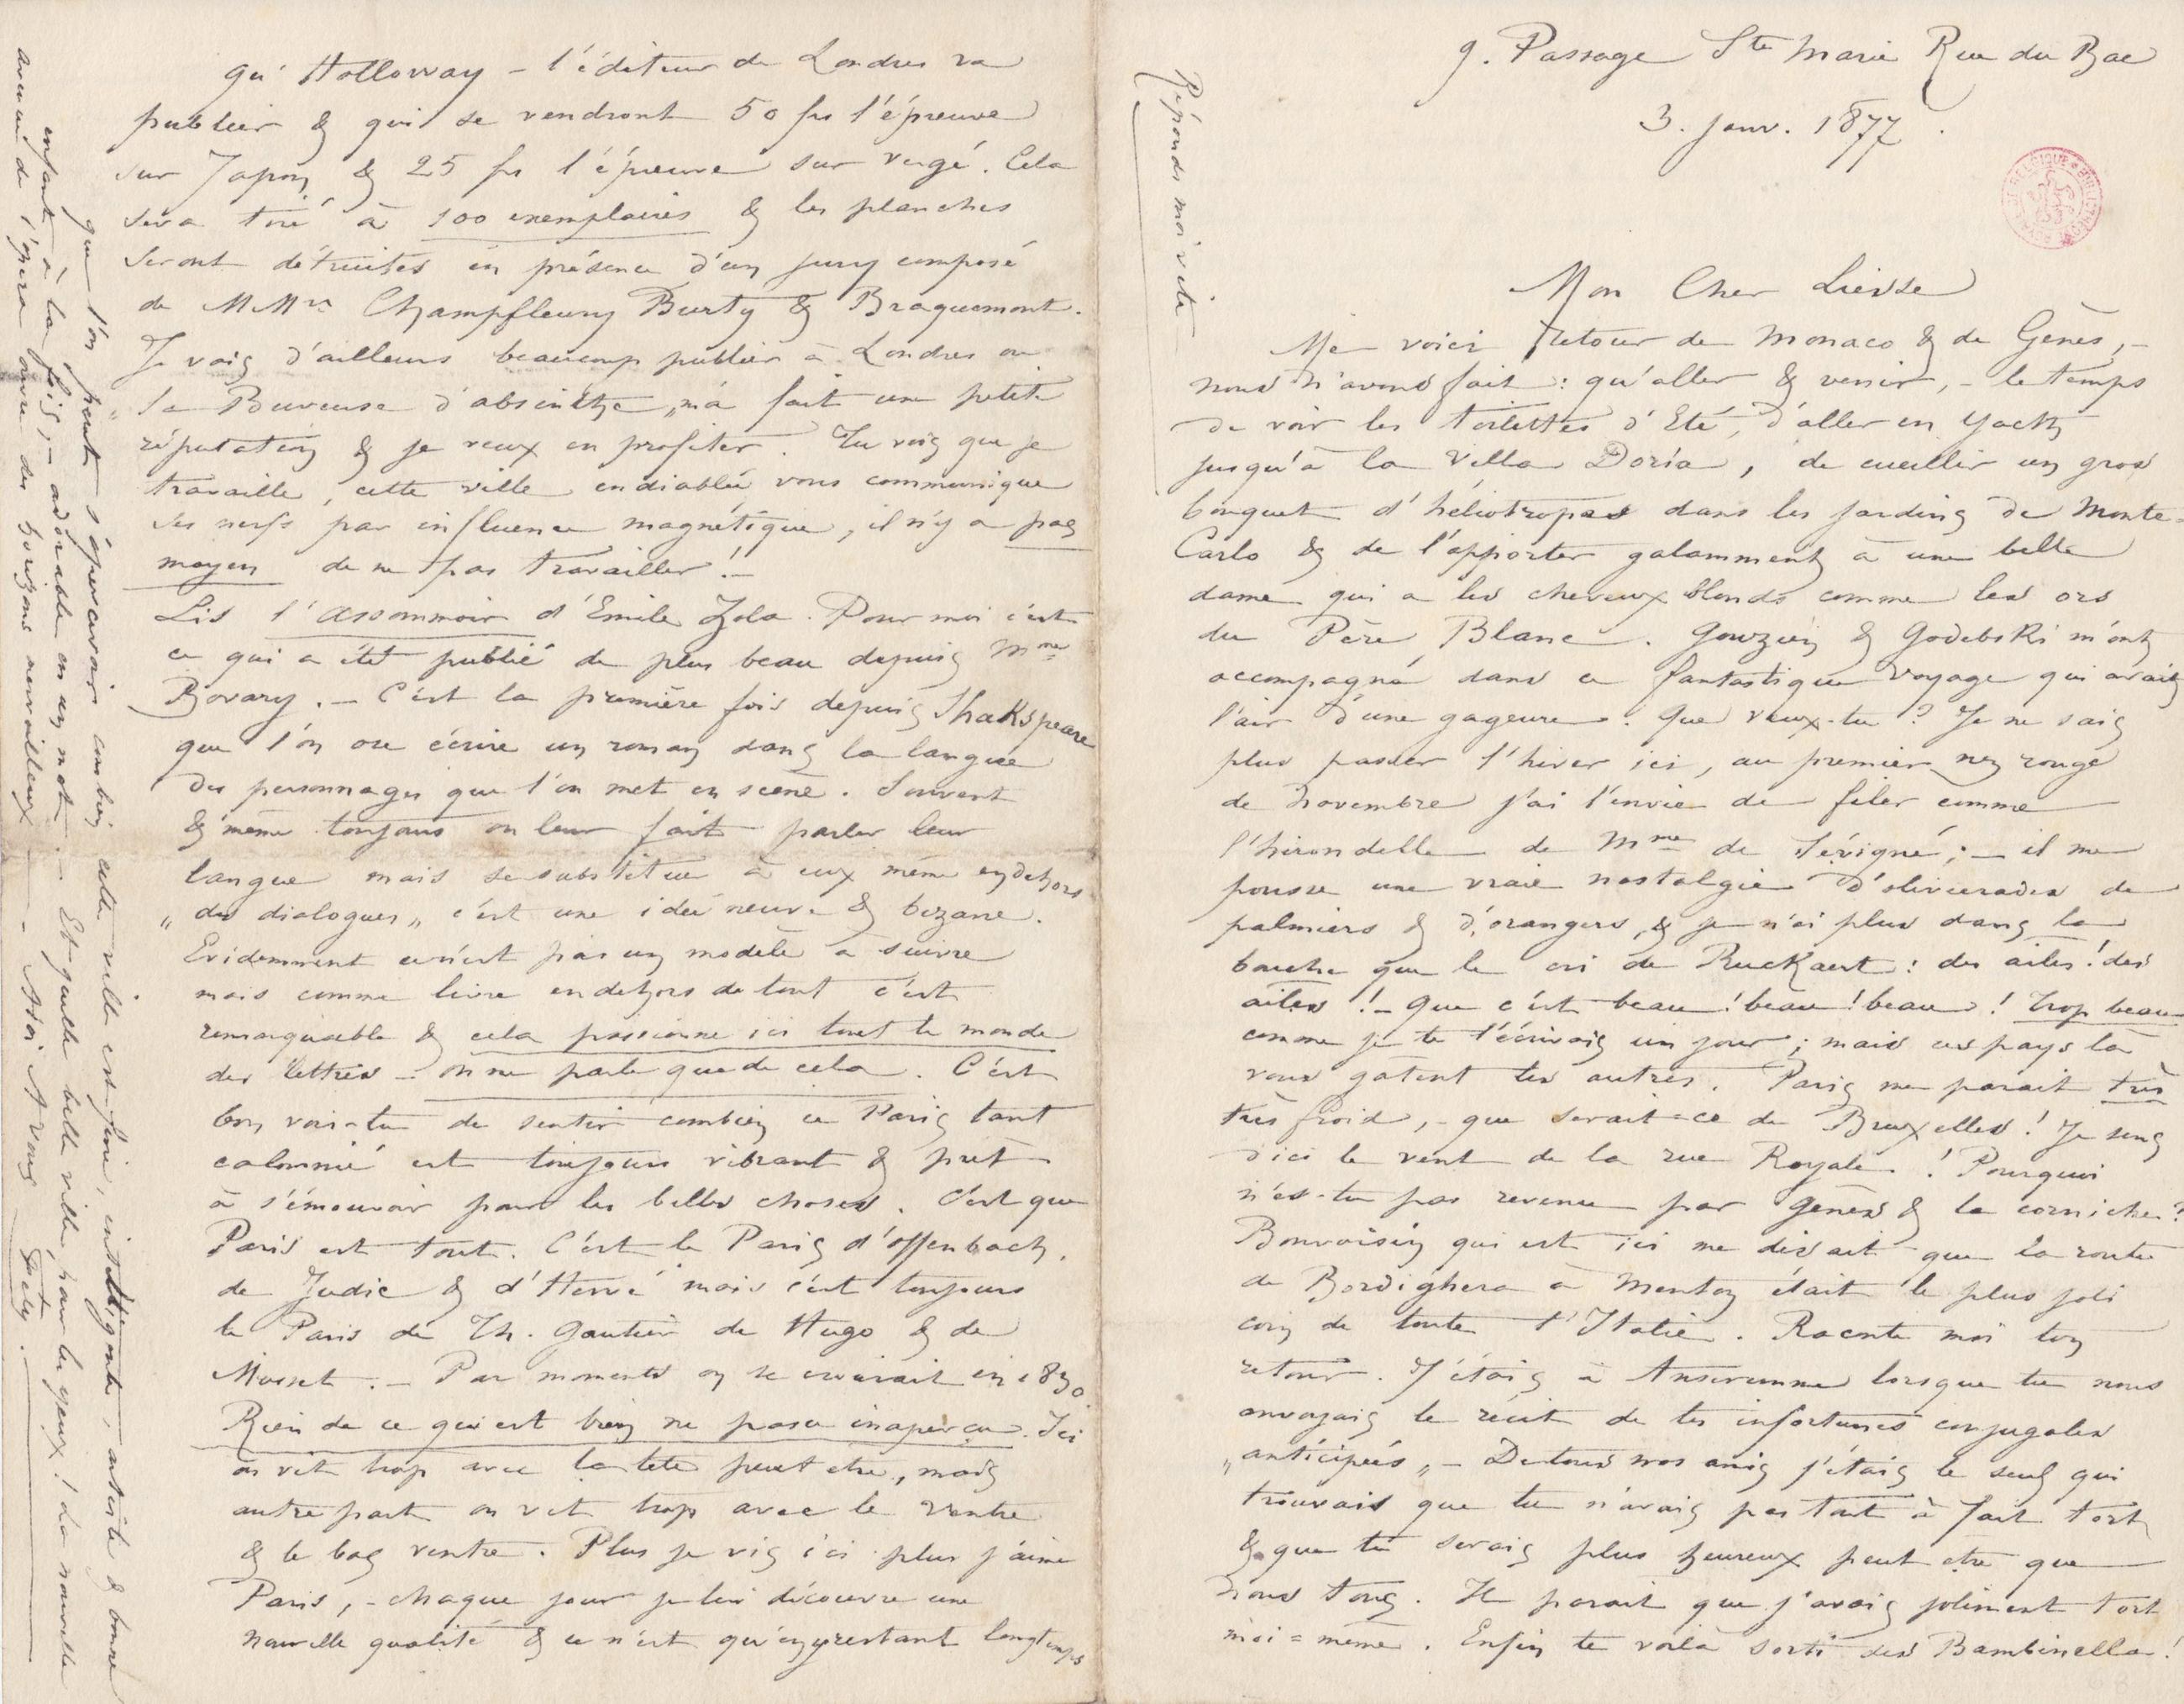 9. Passage Ste Marie Rue du Bac
3. janv. 1877.
Mon Cher Liesse
Me voici retour de Monaco & de Gênes, –
nous n'avons fait : qu'aller & venir, – le temps
de voir les toilettes d'Eté, d'aller en yacht
jusqu'à la villa Doria, de cueillir un gros
bouquet d'héliotropes dans les jardins de Monte-
Carlo & de l'apporter galamment à une belle
dame qui a les cheveux blonds comme les ors
du Père Blanc. Gouzien & Godebski m'ont
accompagné dans ce fantastique voyage qui avait
l'air d'une gageure. Que veux-tu ? Je ne sais
plus passer l'hiver ici, au premier nez rouge
de Novembre j'ai l'envie de filer comme
l'hirondelle de Mme de Sévigné ; – il me
pousse une vraie nostalgie d'oliveraies de
palmiers & d'orangers, & je n'ai plus dans la
bouche que le cri de Ruckaert : des ailes ! des
ailes !! – Que c'est beau ! beau ! beau ! trop beau
comme je te l'écrivais un jour ; mais ces pays là
vous gatent les autres. Paris me parait très
très froid, – que serait-ce de Bruxelles ! Je sens
d'ici le vent de la rue Royale ! Pourquoi
n'es-tu pas revenu par Gênes & la corniche ?
Bonvoisin qui est ici me disait que la route
de Bordighera à Menton était le plus joli
coin de toute l'Italie. Raconte moi ton
retour. J'étais à Anseremme lorsque tu nous
envoyais le récit de tes infortunes conjugales
„anticipées„ – De tous nos amis j'étais le seul qui
trouvait que tu n'avais pas tout à fait tort
& que tu serais plus heureux peut etre que
nous tous. Il parait que j'avais joliment tort
moi=même. Enfin te voilà sorti des Bambinella !
Réponds moi vite
qu'Holloway – l'éditeur de Londres va
publier & qui se vendront 50 frs l'épreuve
sur Japon & 25 frs l'épreuve sur vergé. Cela
sera tiré à 100 exemplaires & les planches
seront détruites en présence d'un jury composé
de MMrs Champfleury Burty & Braquemont.
Je vais d'ailleurs beaucoup publier à Londres ou
„la Buveuse d'absinthe„ m'a fait une petite
réputation & je veux en profiter. Tu vois que je
travaille, cette ville endiablée vous communique
ses nerfs par influence magnétique, il n'y a pas
moyen de ne pas travailler ! –
Lis l'assommoir d'Emile Zola. Pour moi c'est
ce qui a été publié de plus beau depuis Mme
Bovary. – C'est la première fois depuis Shakspeare
que l'on ose écrire un roman dans la langue
des personnages que l'on met en scène. Souvent
& même toujours on leur fait parler leur
langue mais se substituer à eux même en dehors
„des dialogues„ c'est une idée neuve & bizarre.
Evidemment ce n'est pas un modèle à suivre
mais comme livre en dehors de tout c'est
remarquable & cela passionne ici tout le monde
des lettres – on ne parle que de cela. C'est
bon, vois-tu de sentir combien ce Paris tant
calomnié est toujours vibrant & prêt
à s'émouvoir pour les belles choses. C'est que
Paris est tout. C'est le Paris d'Offenbach,
de Judic & d'Hervé mais c'est toujours
le Paris de Th. Gautier de Hugo & de
Musset. – Par moments on se croirait en 1830.
Rien de ce qui est bien ne passe inaperçu. Ici
on vit trop avec la tête peut etre, mais
autre part on vit trop avec le ventre
& le bas ventre. Plus je vis ici plus j'aime
Paris, – chaque jour je lui découvre une
nouvelle qualité & ce n'est qu'en y restant longtemps
que l'on peut s'apercevoir combien cette ville est fine, intelligente, artiste & bonne
enfant à la fois, – adorable en un mot. – Et quelle belle ville pour les yeux ! La nouvelle
avenue de l'opera ouvre des horizons merveilleux – – Adoi A vous Fély.